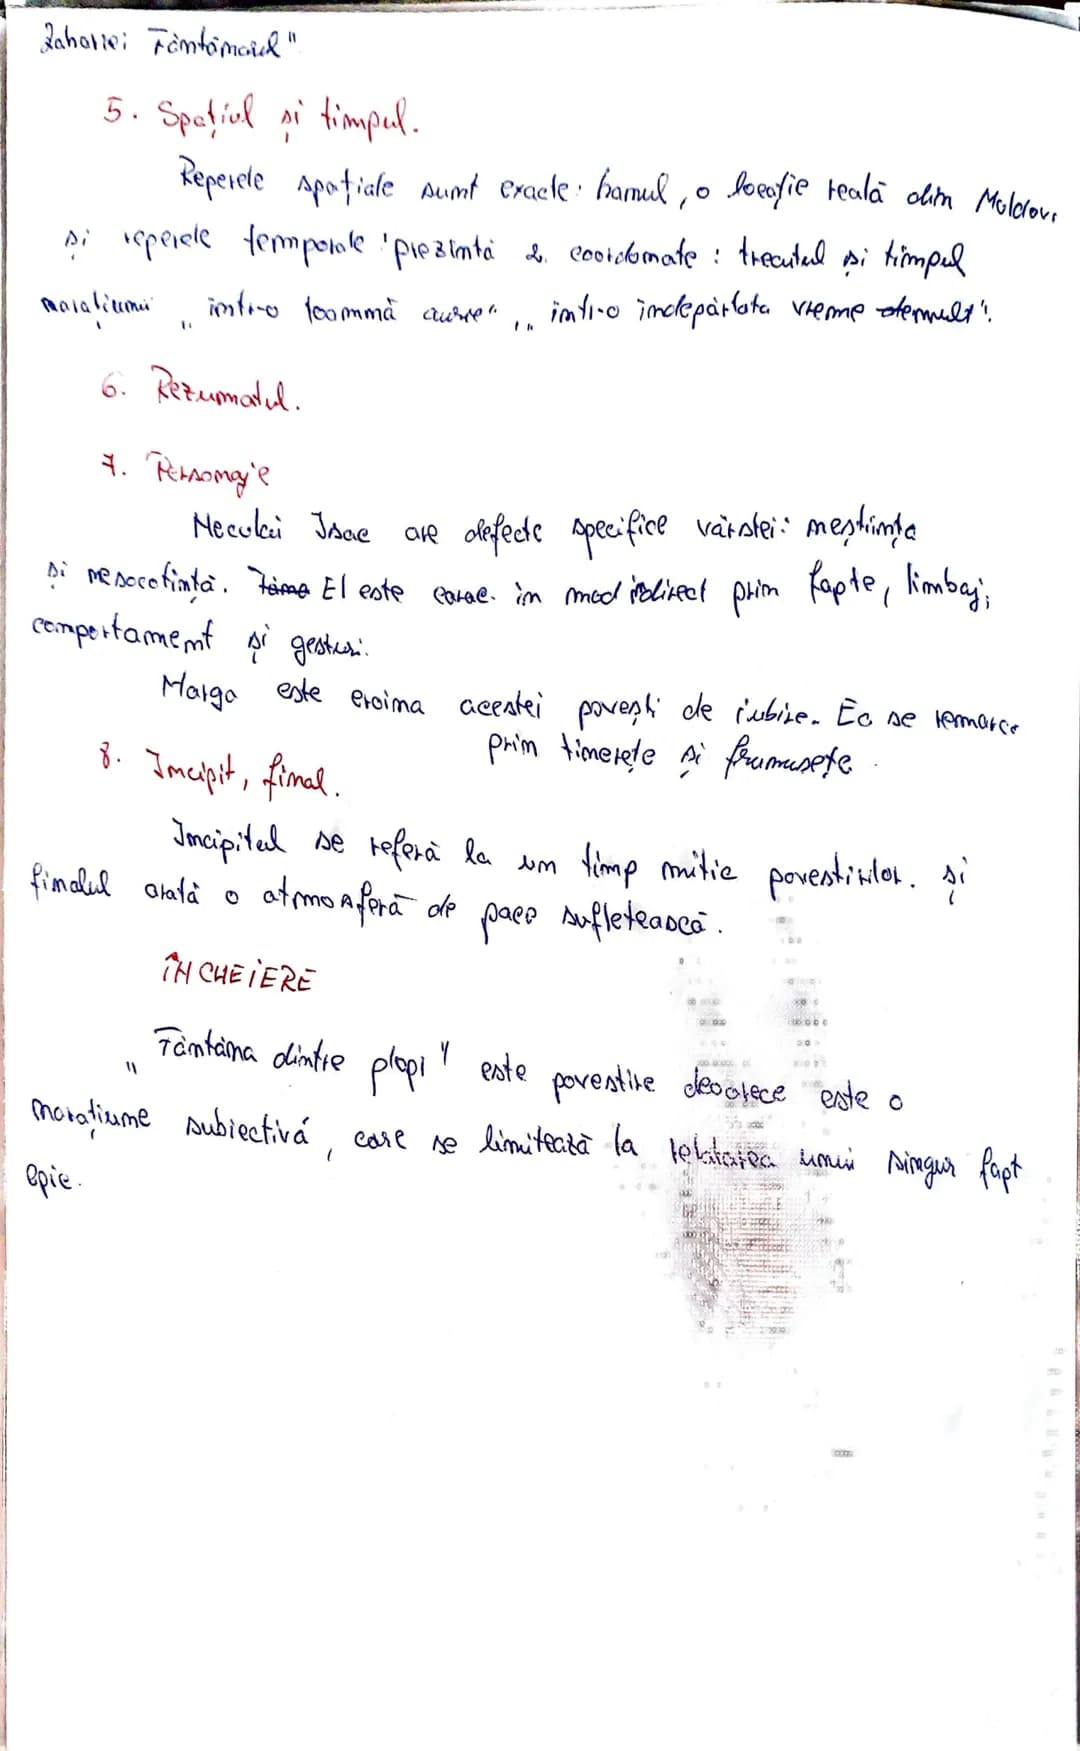 Zahariei Fântânarul"
5. Spațiul și timpul.
Reperele spațiale sunt exacte: hanul, o locație reală din Moldova
și reperele temporale prezintă 2 coordonate: trecutul și timpul
narațiunii „într-o toamnă aurie", „într-o îndepărtata vreme demult".
6. Rezumatul.
7. Personaje
Neculai Isac are defecte specifice vârstei: neștiința
și nesocotința. El este carac. în mod indirect prin fapte, limbaj,
comportament și gesturi.
Marga este eroina acestei povești de iubire. Ea se remarca
prin tinerețe și frumusețe.
8. Incipit, final.
Incipitul se referă la un timp mitic povestirilor. și
finalul arată o atmosferă de pace sufletească.
ÎNCHEIERE
„Fântâna dintre plopi" este povestire deoarece este o
narațiune subiectivă, care se limitează la relatarea unui singur fapt
epic.